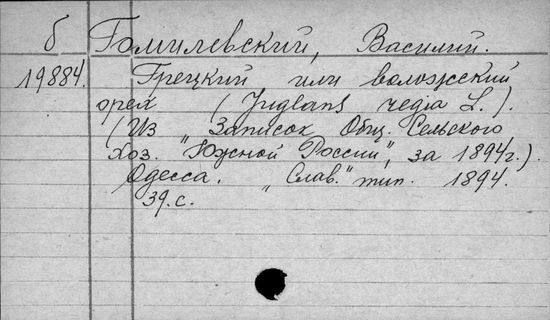 б Гомилевский, Василий.
19884. Грецкий или волозсский
орех (Juglans regia L.).
(Из Записок Общ. Сельского
хоз. "Южной России", за 1894г.)
Одесса. „Слав." тип. 1894.
39.с.